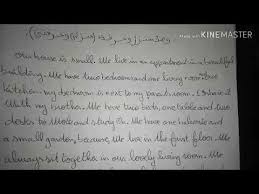 Made with
KINEMASTER
Our house is small. We live in an appartment in a beautiful
building. We have two bedrooms and one living room one
Kitchen. my bedroom is next to my parents room. I share it
With my brother. We have two beds, one table and two
desks to Write and study in. We have one balcony and
a small garden, because We live in the first floor. We
always sit together in our lovely living room. We